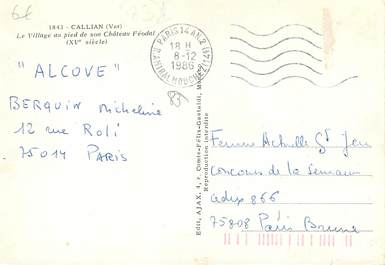 6€
1843 - CALLIAN (Var)
Le Village au pied de son Château Féodal
(XVe siècle)
"ALCOVE"
BERQUIN Micheline
12 rue Roli
75014 PARIS
PARIS 14 AN. 2 (14)
18 H
8-12
1986
83
Edit. AJAX, 4, r. Comte-Félix-Gastaldi,
Reproduction interdite
Femme Actuelle St Jeu
Concours de la Semaine
cedex 866
75808 Paris Brune